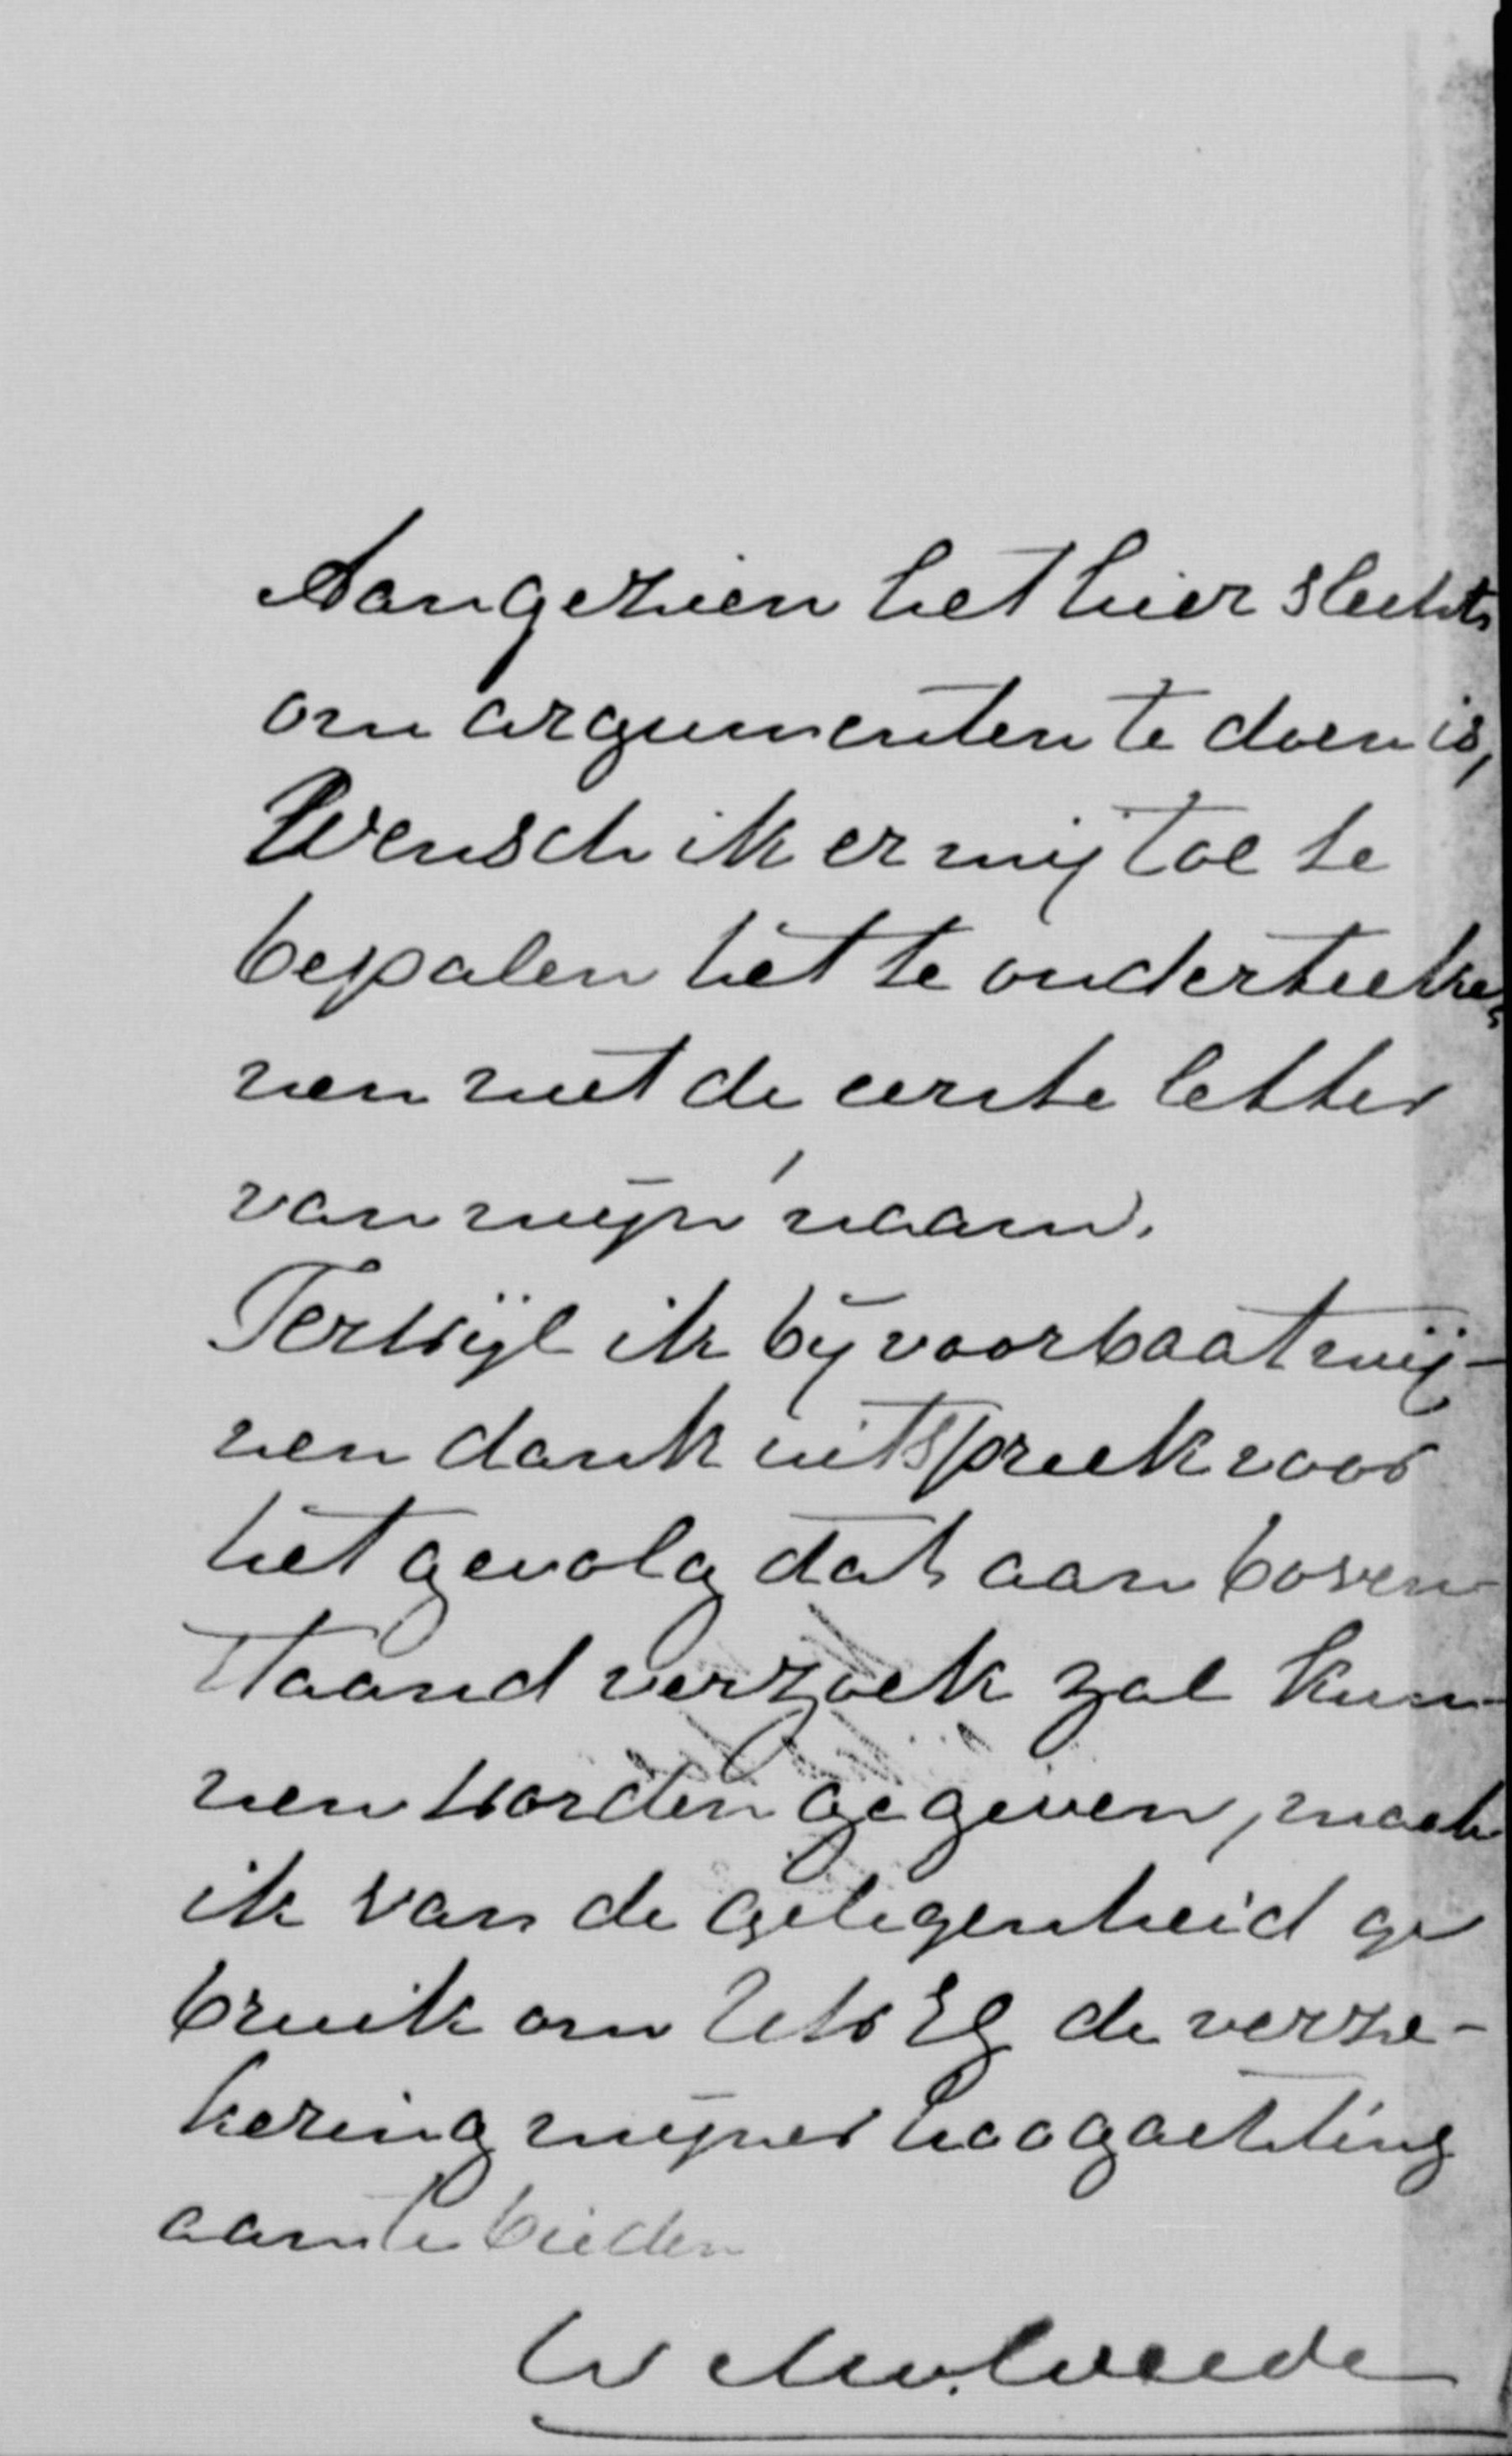 Aangezien het hier slechts
om argumenten te doen is,
Wensch ik er mij toe te
bepalen het te onderteeke
nen met de eerste letter
van mijn naam.
Terwijl ik bij voorbaat mij-
nen dank uitspreek voor
het gevolg dat aan boven-
staand verzoek zal kun-
nen worden gegeven, maak
ik van de gelegenheid ge
bruik om UwEg de verze-
kering mijner hoogachting
aan te bieden